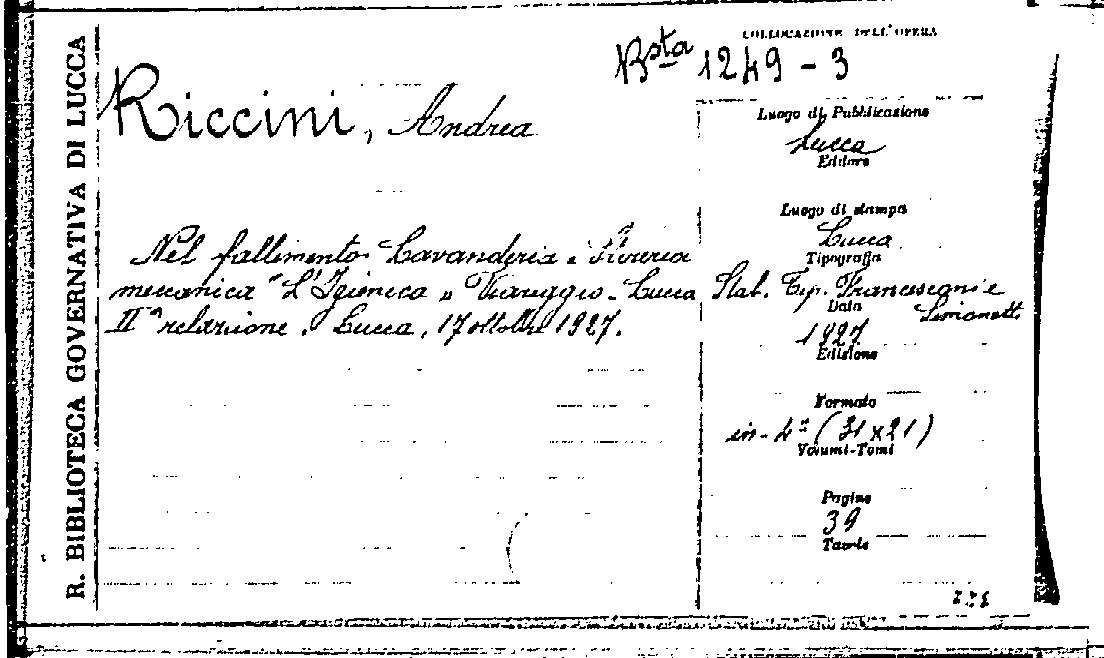 R. BIBLIOTECA GOVERNATIVA DI LUCCA
COLLOCAZIONE DELL'OPERA
Bsta 1249 - 3
Riccini, Andrea
Nel fallimento Lavanderia e Stireria
meccanica "L'Igienica" Viareggio - Lucca
IIª relazione. Lucca, 17 ottobre 1927.
Luogo di Pubblicazione
Lucca
Editore
Luogo di stampa
Lucca
Tipografia
Stab. Tip. Francesconi e
Simonetti
Data
1927
Edizione
Formato
in-4º (31x21)
Volumi-Tomi
Pagine
39
Tavole